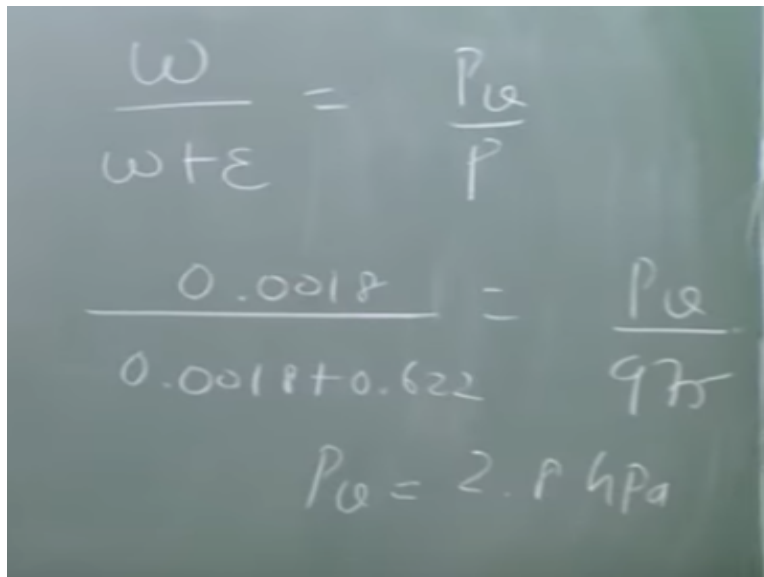 ω/(ω+ε) = Pv/P
0.0018/(0.0018+0.622) = Pv/975
Pv = 2.8 hPa